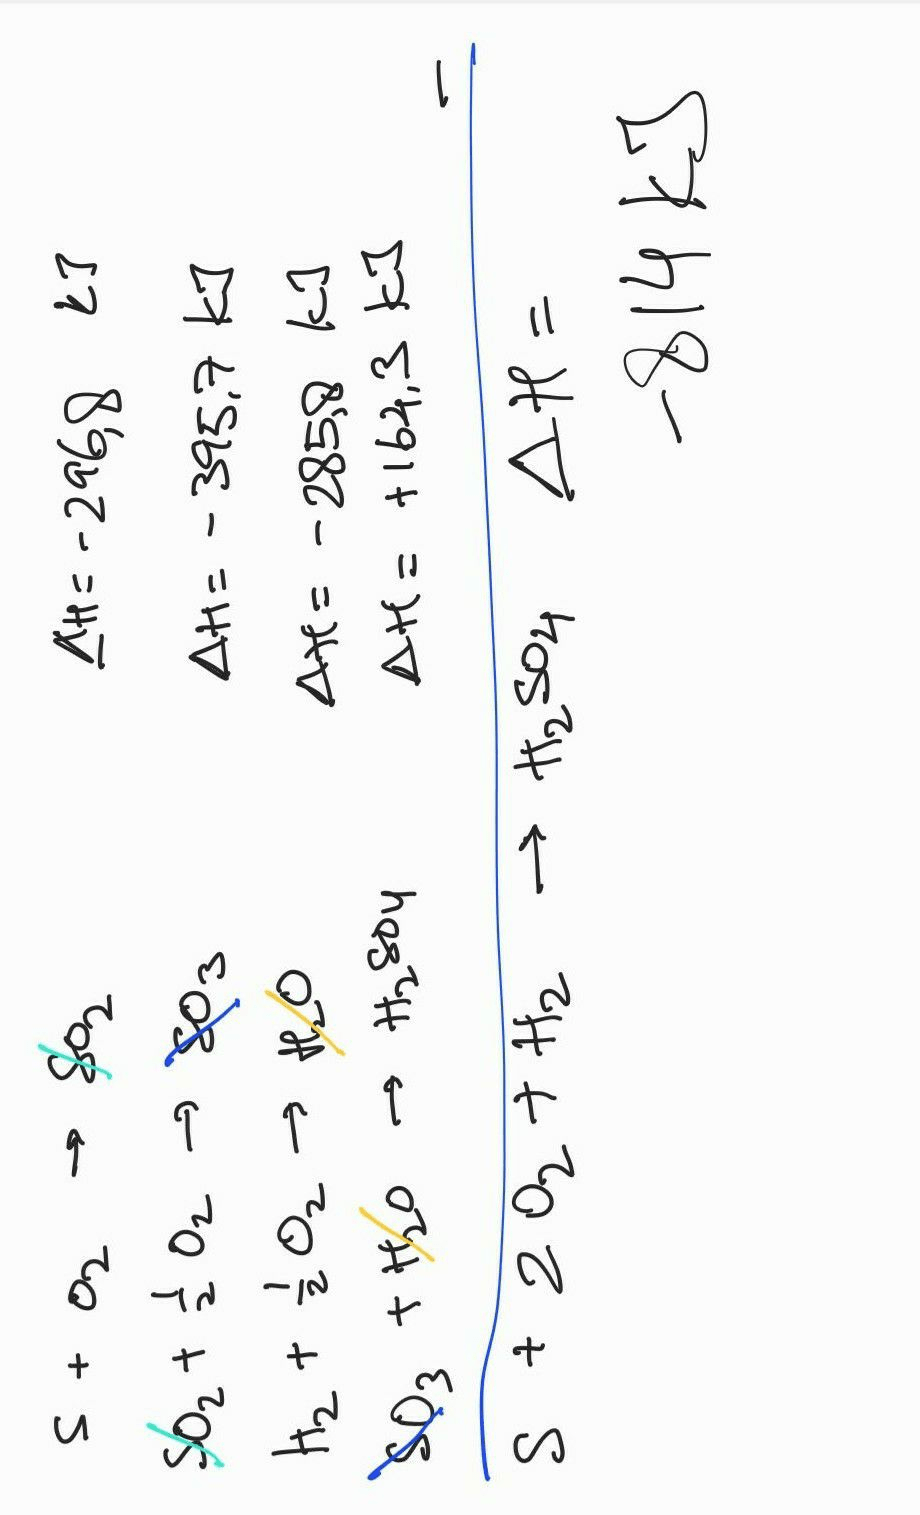 S + O2 → SO2 ΔH = -296,8 kJ
SO2 + 1/2 O2 → SO3 ΔH = - 395,7 kJ
H2 + 1/2 O2 → H2O ΔH = - 285,8 kJ
SO3 + H2O → H2SO4 ΔH = +164,3 kJ
S + 2 O2 + H2 → H2SO4 ΔH =
-814 kJ